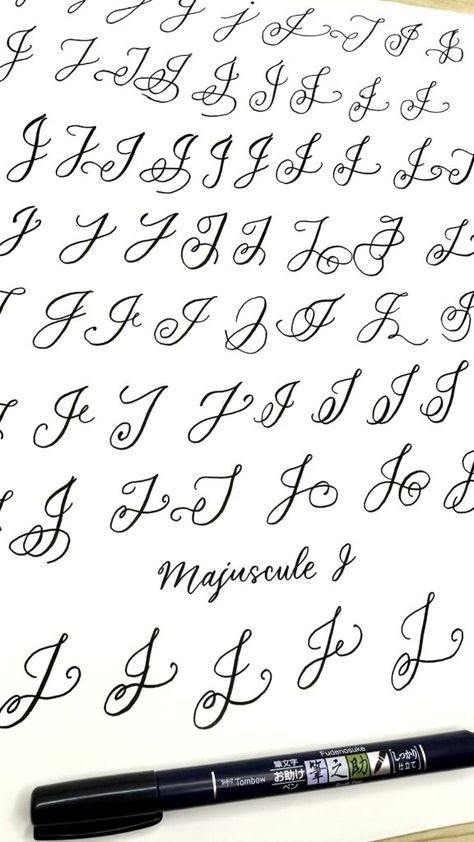 J J J J J J J J J
J J J J J J J J J
J J J J J J J J J J
J J J J J J J J
J J J J J J J J
J J J J J J J J
J J J J J J J
Majuscule J
J J J J J
Tombow
筆文字
お助け
ペン
Fudenosuke
筆之助
しっかり
仕立て